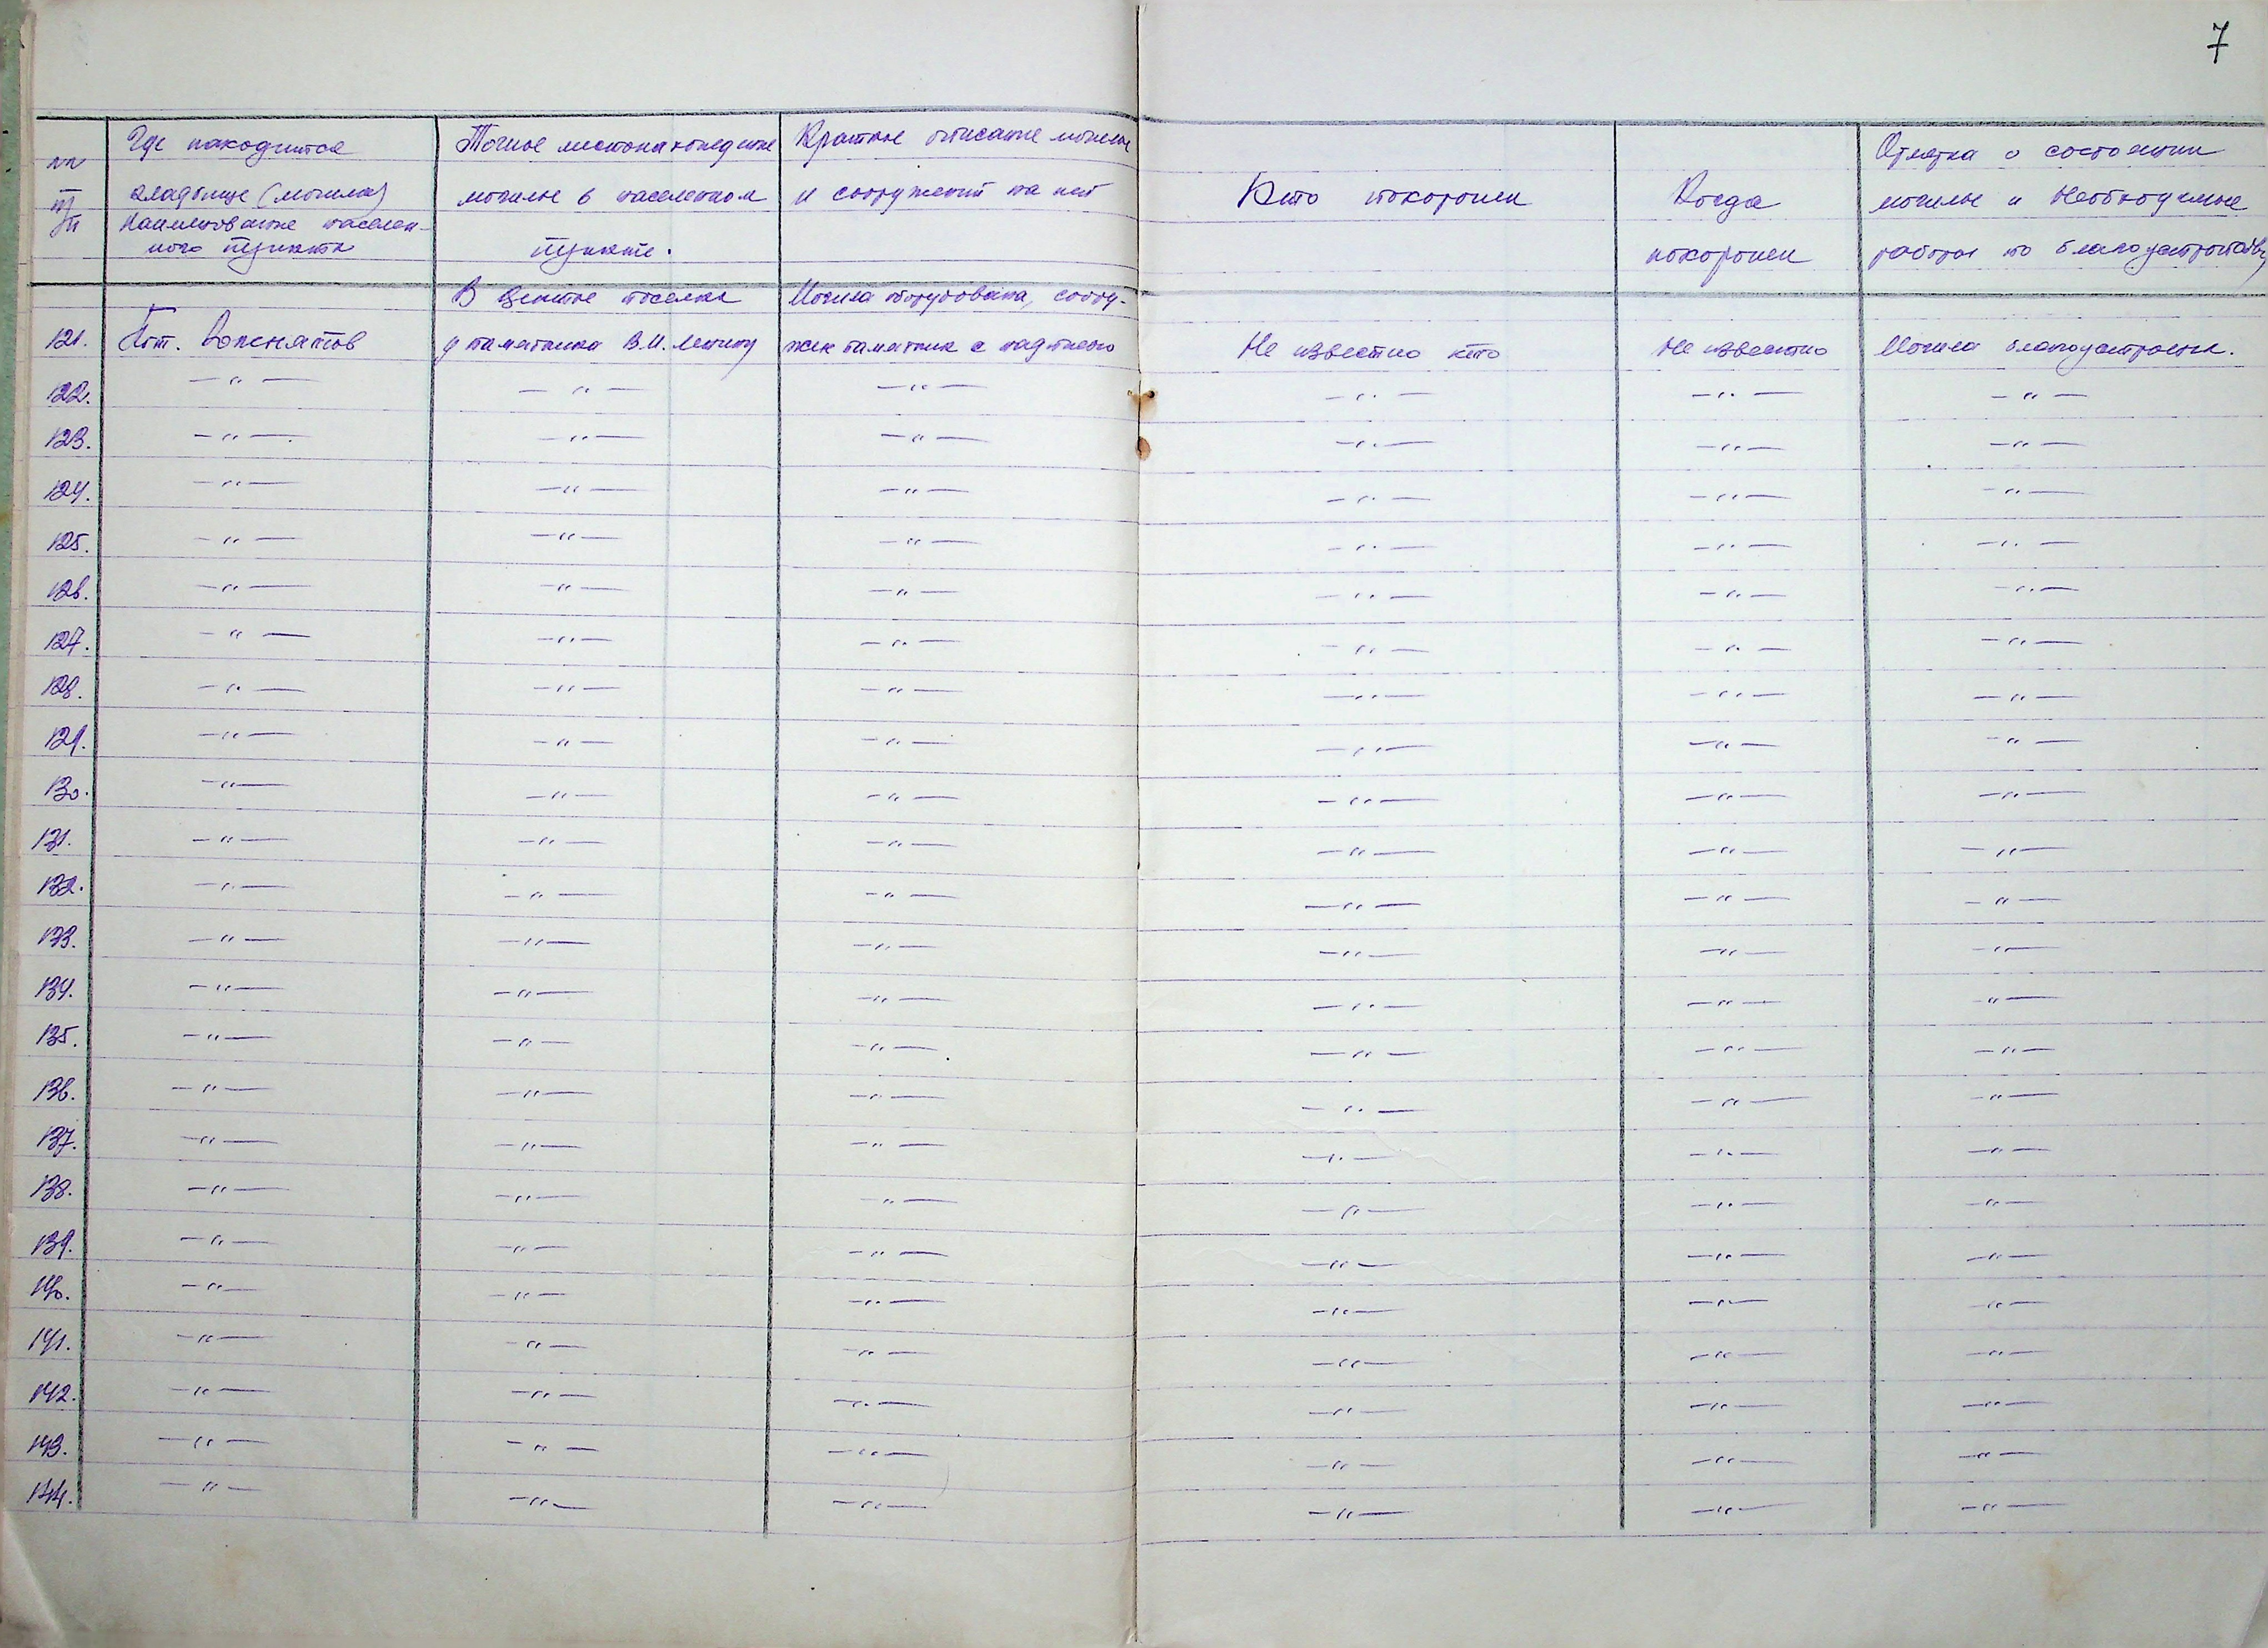 7
№№ пп | Где находится кладбище (могила) Наименование населен-ного пункта | Точное местонахождение могилы в населенном пункте. | Краткое описание могилы и сооружений на ней | Кто похоронен | Когда похоронен | Отметка о состоянии могилы и необходимые работы по благоустройству
121. | Пгт. Рожнятов | В центре поселка у памятника В.И. Ленину | Могила оборудована, соору-жен памятник с надписью | Не известно кто | Не известно | Могила благоустроена.
122. | —"— | —"— | —"— | —"— | —"— | —"—
123. | —"— | —"— | —"— | —"— | —"— | —"—
124. | —"— | —"— | —"— | —"— | —"— | —"—
125. | —"— | —"— | —"— | —"— | —"— | —"—
126. | —"— | —"— | —"— | —"— | —"— | —"—
127. | —"— | —"— | —"— | —"— | —"— | —"—
128. | —"— | —"— | —"— | —"— | —"— | —"—
129. | —"— | —"— | —"— | —"— | —"— | —"—
130. | —"— | —"— | —"— | —"— | —"— | —"—
131. | —"— | —"— | —"— | —"— | —"— | —"—
132. | —"— | —"— | —"— | —"— | —"— | —"—
133. | —"— | —"— | —"— | —"— | —"— | —"—
134. | —"— | —"— | —"— | —"— | —"— | —"—
135. | —"— | —"— | —"— | —"— | —"— | —"—
136. | —"— | —"— | —"— | —"— | —"— | —"—
137. | —"— | —"— | —"— | —"— | —"— | —"—
138. | —"— | —"— | —"— | —"— | —"— | —"—
139. | —"— | —"— | —"— | —"— | —"— | —"—
140. | —"— | —"— | —"— | —"— | —"— | —"—
141. | —"— | —"— | —"— | —"— | —"— | —"—
142. | —"— | —"— | —"— | —"— | —"— | —"—
143. | —"— | —"— | —"— | —"— | —"— | —"—
144. | —"— | —"— | —"— | —"— | —"— | —"—